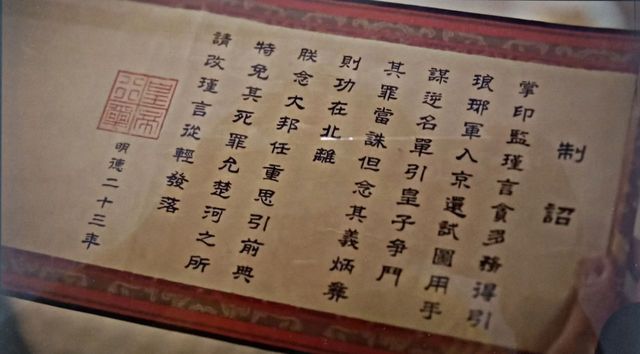 制詔
掌印監瑾言貪多務得引
琅琊軍入京還試圖用手
謀逆名單引皇子爭鬥
其罪當誅但念其義炳乖
則功在北離
朕念大邦任重思引前典
特免其死罪允楚河之所
請改瑾言從輕發落
明德二十三年
皇帝行璽